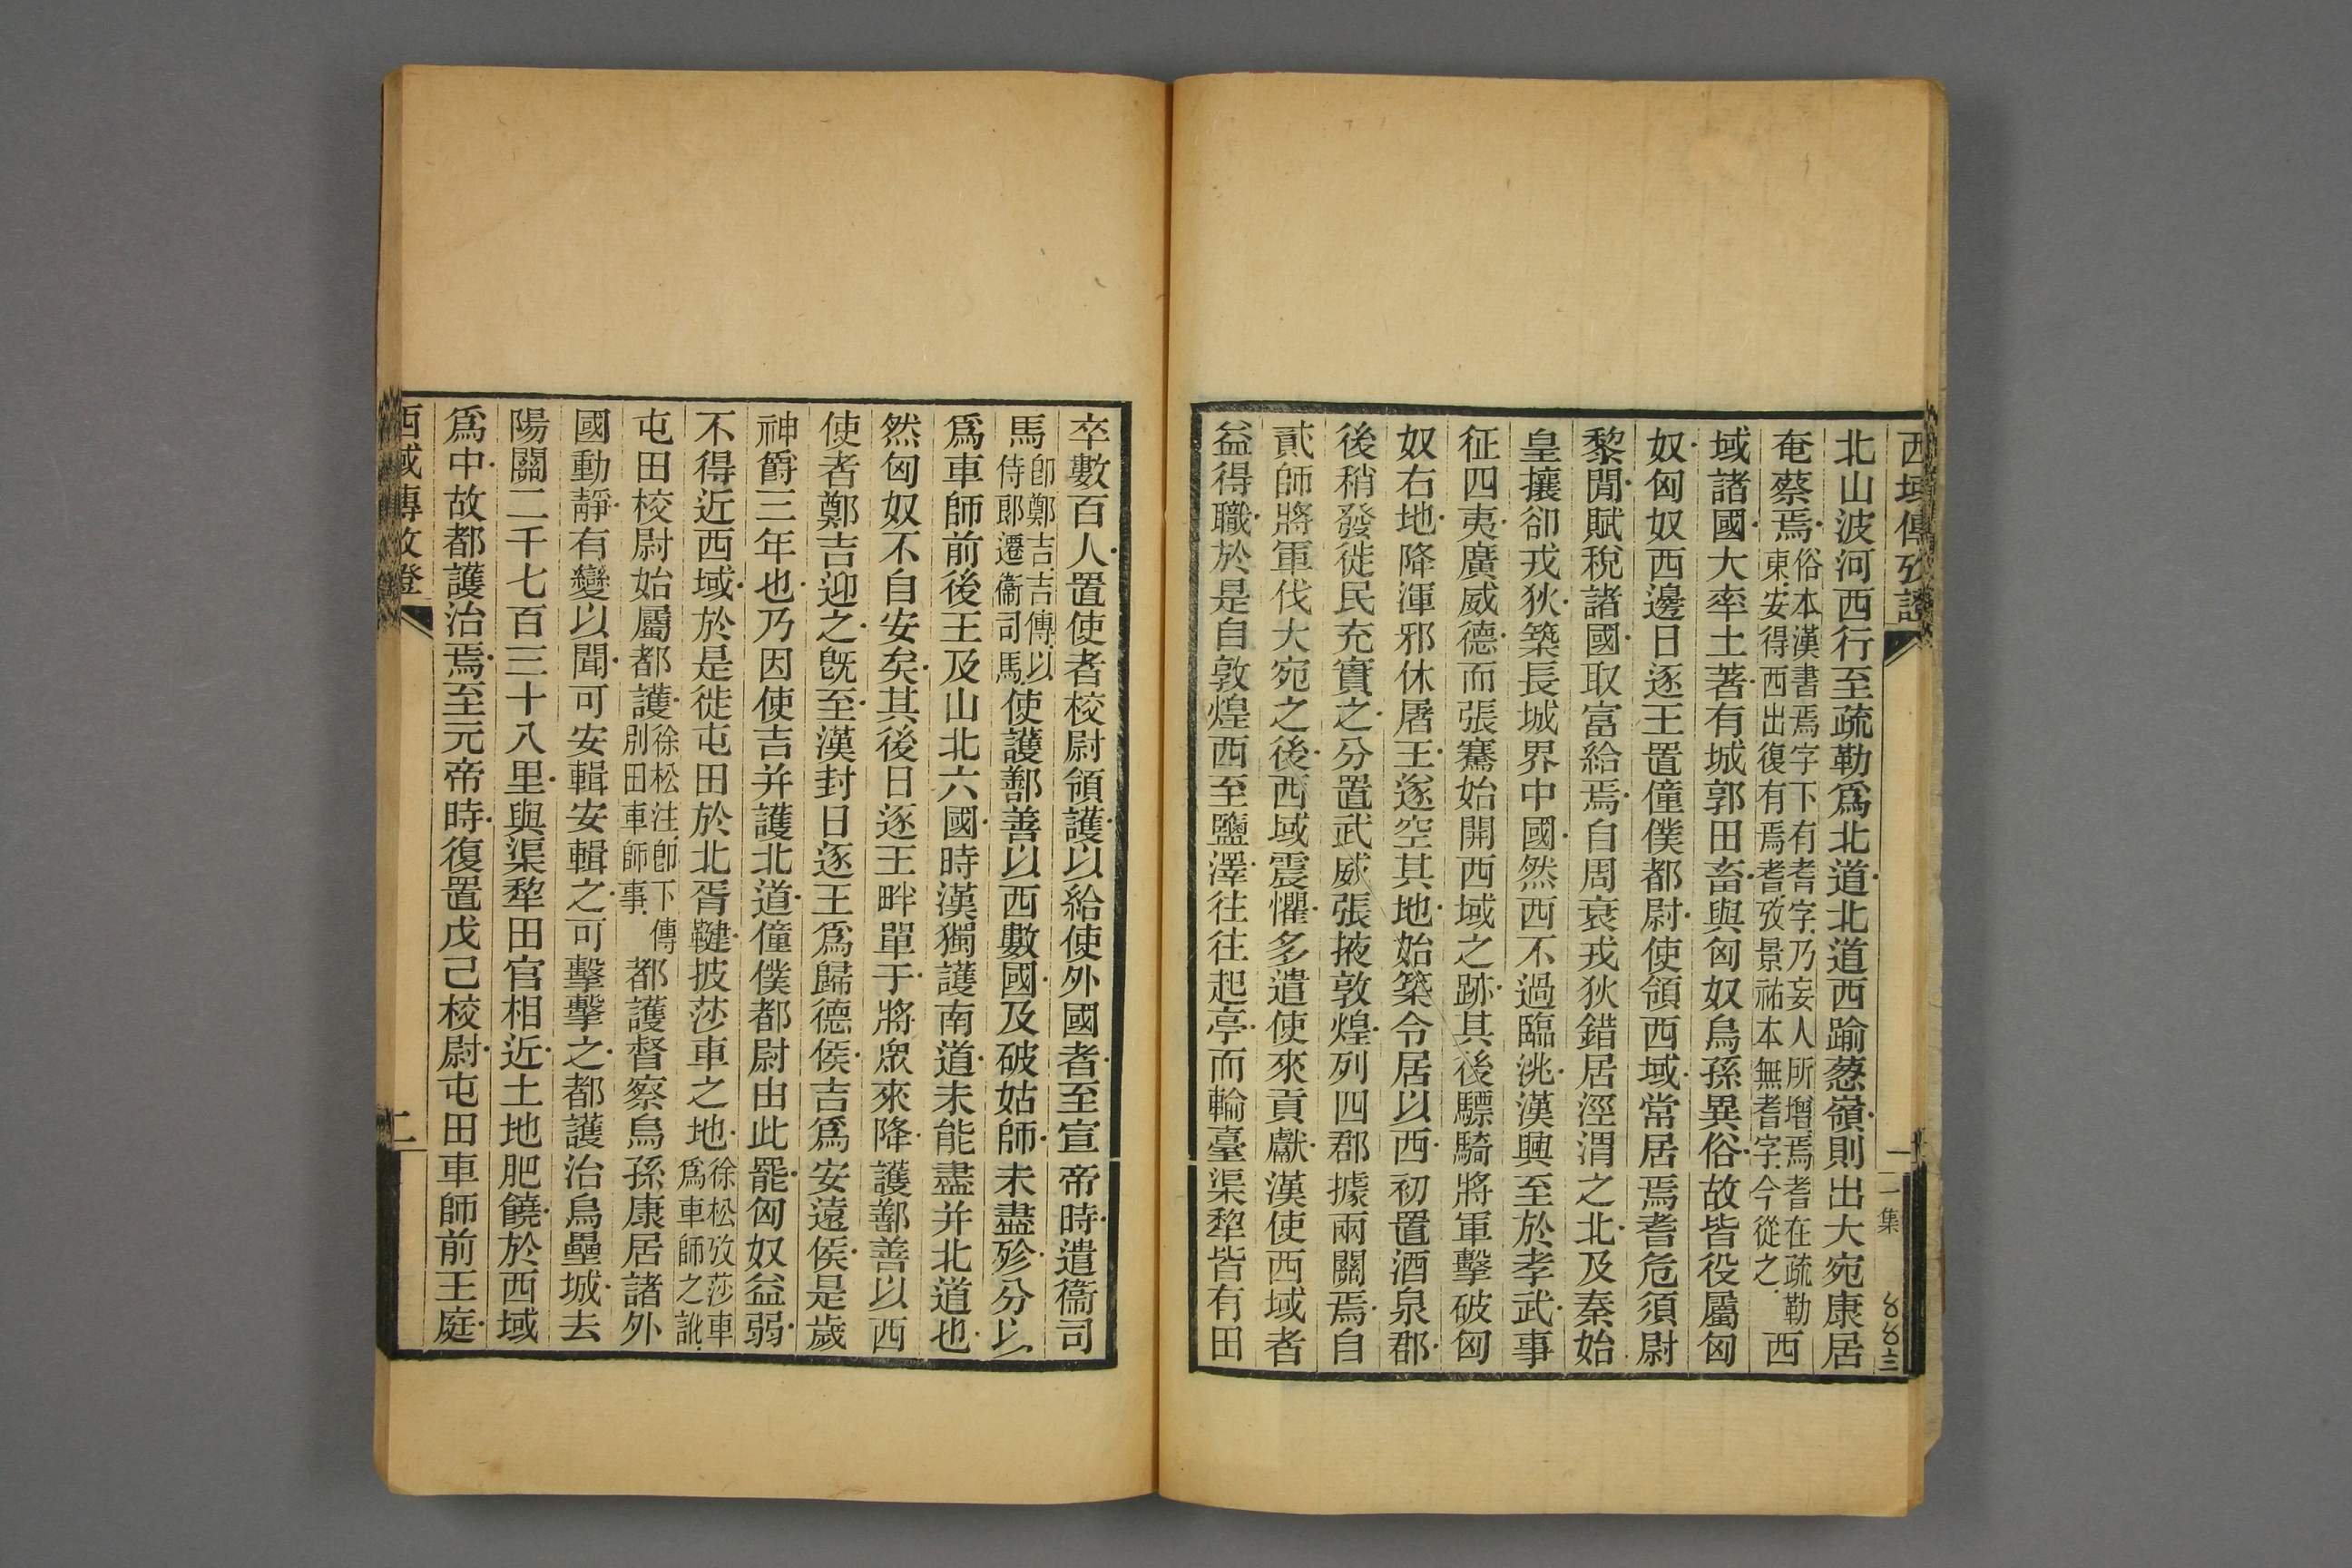 西域傳攷證
一
一集
8 8 三
北山波河西行至疏勒爲北道北道西踰葱嶺則出大宛康居
奄蔡焉俗本漢書焉字下有耆字乃妄人所增焉耆在疏勒
東安得西出復有焉耆攷景祐本無耆字今從之西
域諸國大率土著有城郭田畜與匈奴烏孫異俗故皆役屬匈
奴匈奴西邊日逐王置僮僕都尉使領西域常居焉耆危須尉
黎閒賦稅諸國取富給焉自周衰戎狄錯居涇渭之北及秦始
皇攘卻戎狄築長城界中國然西不過臨洮漢興至於孝武事
征四夷廣威德而張騫始開西域之跡其後驃騎將軍擊破匈
奴右地降渾邪休屠王遂空其地始築令居以西初置酒泉郡
後稍發徙民充實之分置武威張掖敦煌列四郡據兩關焉自
貳師將軍伐大宛之後西域震懼多遣使來貢獻漢使西域者
益得職於是自敦煌西至鹽澤往往起亭而輪臺渠犂皆有田
卒數百人置使者校尉領護以給使外國者至宣帝時遣衞司
馬卽鄭吉吉傳以
侍郎遷衞司馬使護鄯善以西數國及破姑師未盡殄分以
爲車師前後王及山北六國時漢獨護南道未能盡并北道也
然匈奴不自安矣其後日逐王畔單于將衆來降護鄯善以西
使者鄭吉迎之旣至漢封日逐王爲歸德侯吉爲安遠侯是歲
神爵三年也乃因使吉并護北道僮僕都尉由此罷匈奴益弱
不得近西域於是徙屯田於北胥鞬披莎車之地徐松攷莎車
爲車師之訛
屯田校尉始屬都護徐松注卽下傳
別田車師事都護督察烏孫康居諸外
國動靜有變以聞可安輯安輯之可擊擊之都護治烏壘城去
陽關二千七百三十八里與渠犂田官相近土地肥饒於西域
爲中故都護治焉至元帝時復置戊己校尉屯田車師前王庭
西域傳攷證
二